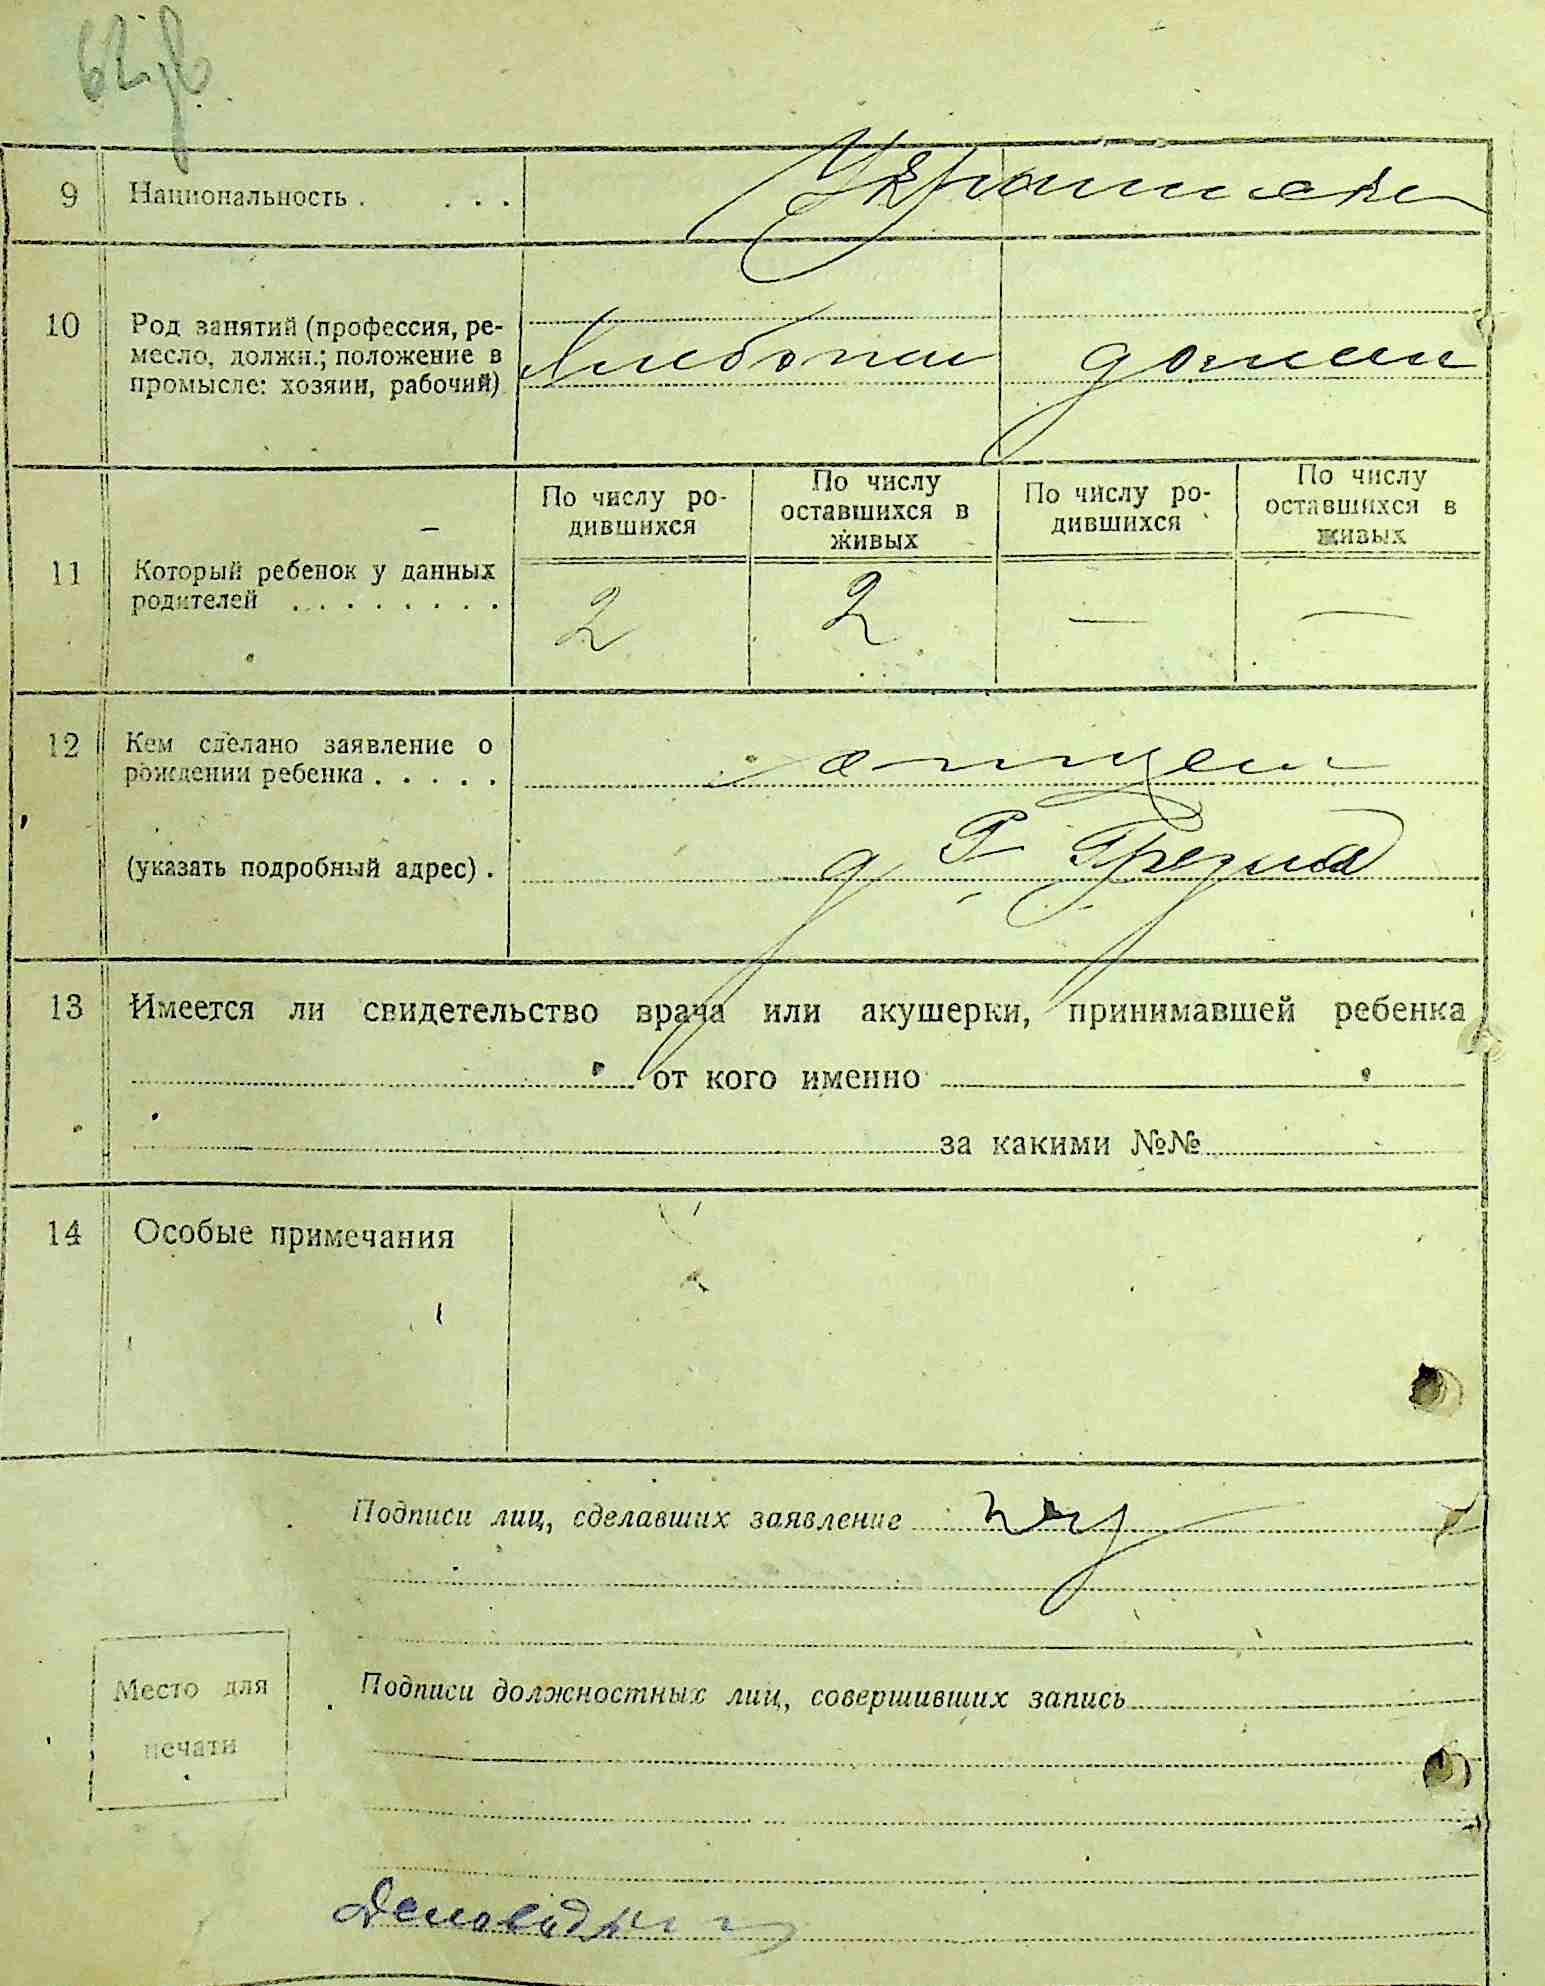 9 Национальность . . . . Украинцы
10 Род занятий (профессия, ре-
месло, должн.; положение в
промысле: хозяин, рабочий)
Хлебопаш домаш
11 Который ребенок у данных
родителей . . . . . . . .
По числу ро-
дившихся
По числу
оставшихся в
живых
По числу ро-
дившихся
По числу
оставшихся в
живых
2 2 — —
12 Кем сделано заявление о
рождении ребенка . . . . .
отцем
(указать подробный адрес) .
13 Имеется ли свидетельство врача или акушерки, принимавшей ребенка
от кого именно
за какими №№
14 Особые примечания
Подписи лиц, сделавших заявление
Место для
печати
Подписи должностных лиц, совершивших запись